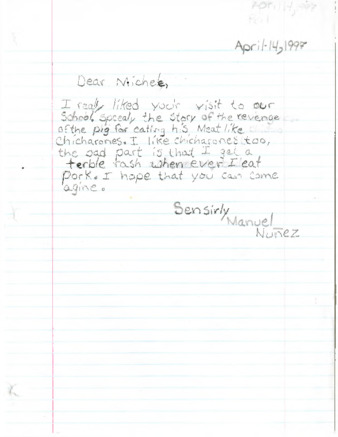 April-14,1997
Dear Michele,
I really liked your visit to our
School specaly the Story of the revenge
of the pig for eating his Meat like
Chicharones. I like chicharones too,
the bad part is that I get a
terble rash when ever I eat
pork. I hope that you can come
agine.
Sensirly
Manuel
Nuñez